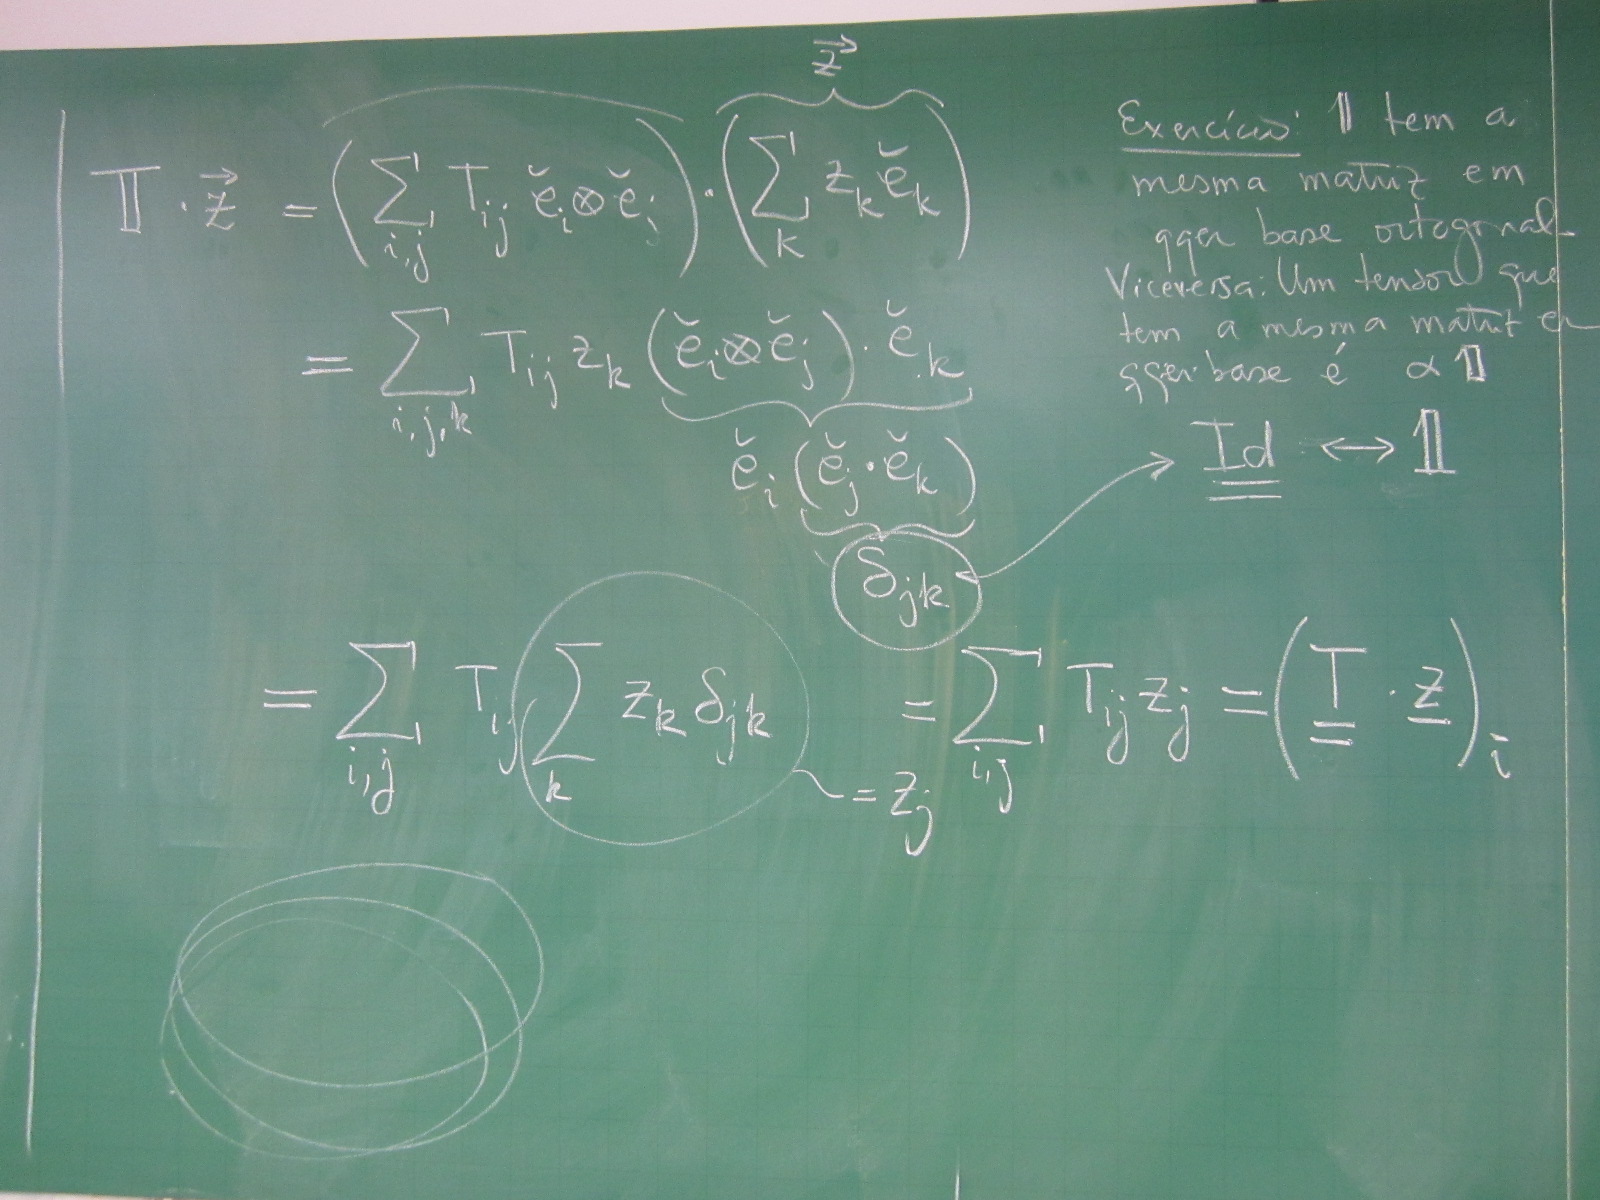 z⃗
𝕋 · z⃗ = (∑_{i,j} T_{ij} ě_i ⊗ ě_j) · (∑_k z_k ě_k)
= ∑_{i,j,k} T_{ij} z_k (ě_i ⊗ ě_j) · ě_k
ě_i (ě_j · ě_k)
δ_{jk}
= ∑_{i,j} T_{ij} ∑_k z_k δ_{jk} = ∑_{i,j} T_{ij} z_j = (T · z)_i
= z_j
Exercício: 𝟙 tem a
mesma matriz em
qqer base ortogonal
Viceversa: Um tensor que
tem a mesma matriz em
qqer base é α 𝟙
Id ↔ 𝟙